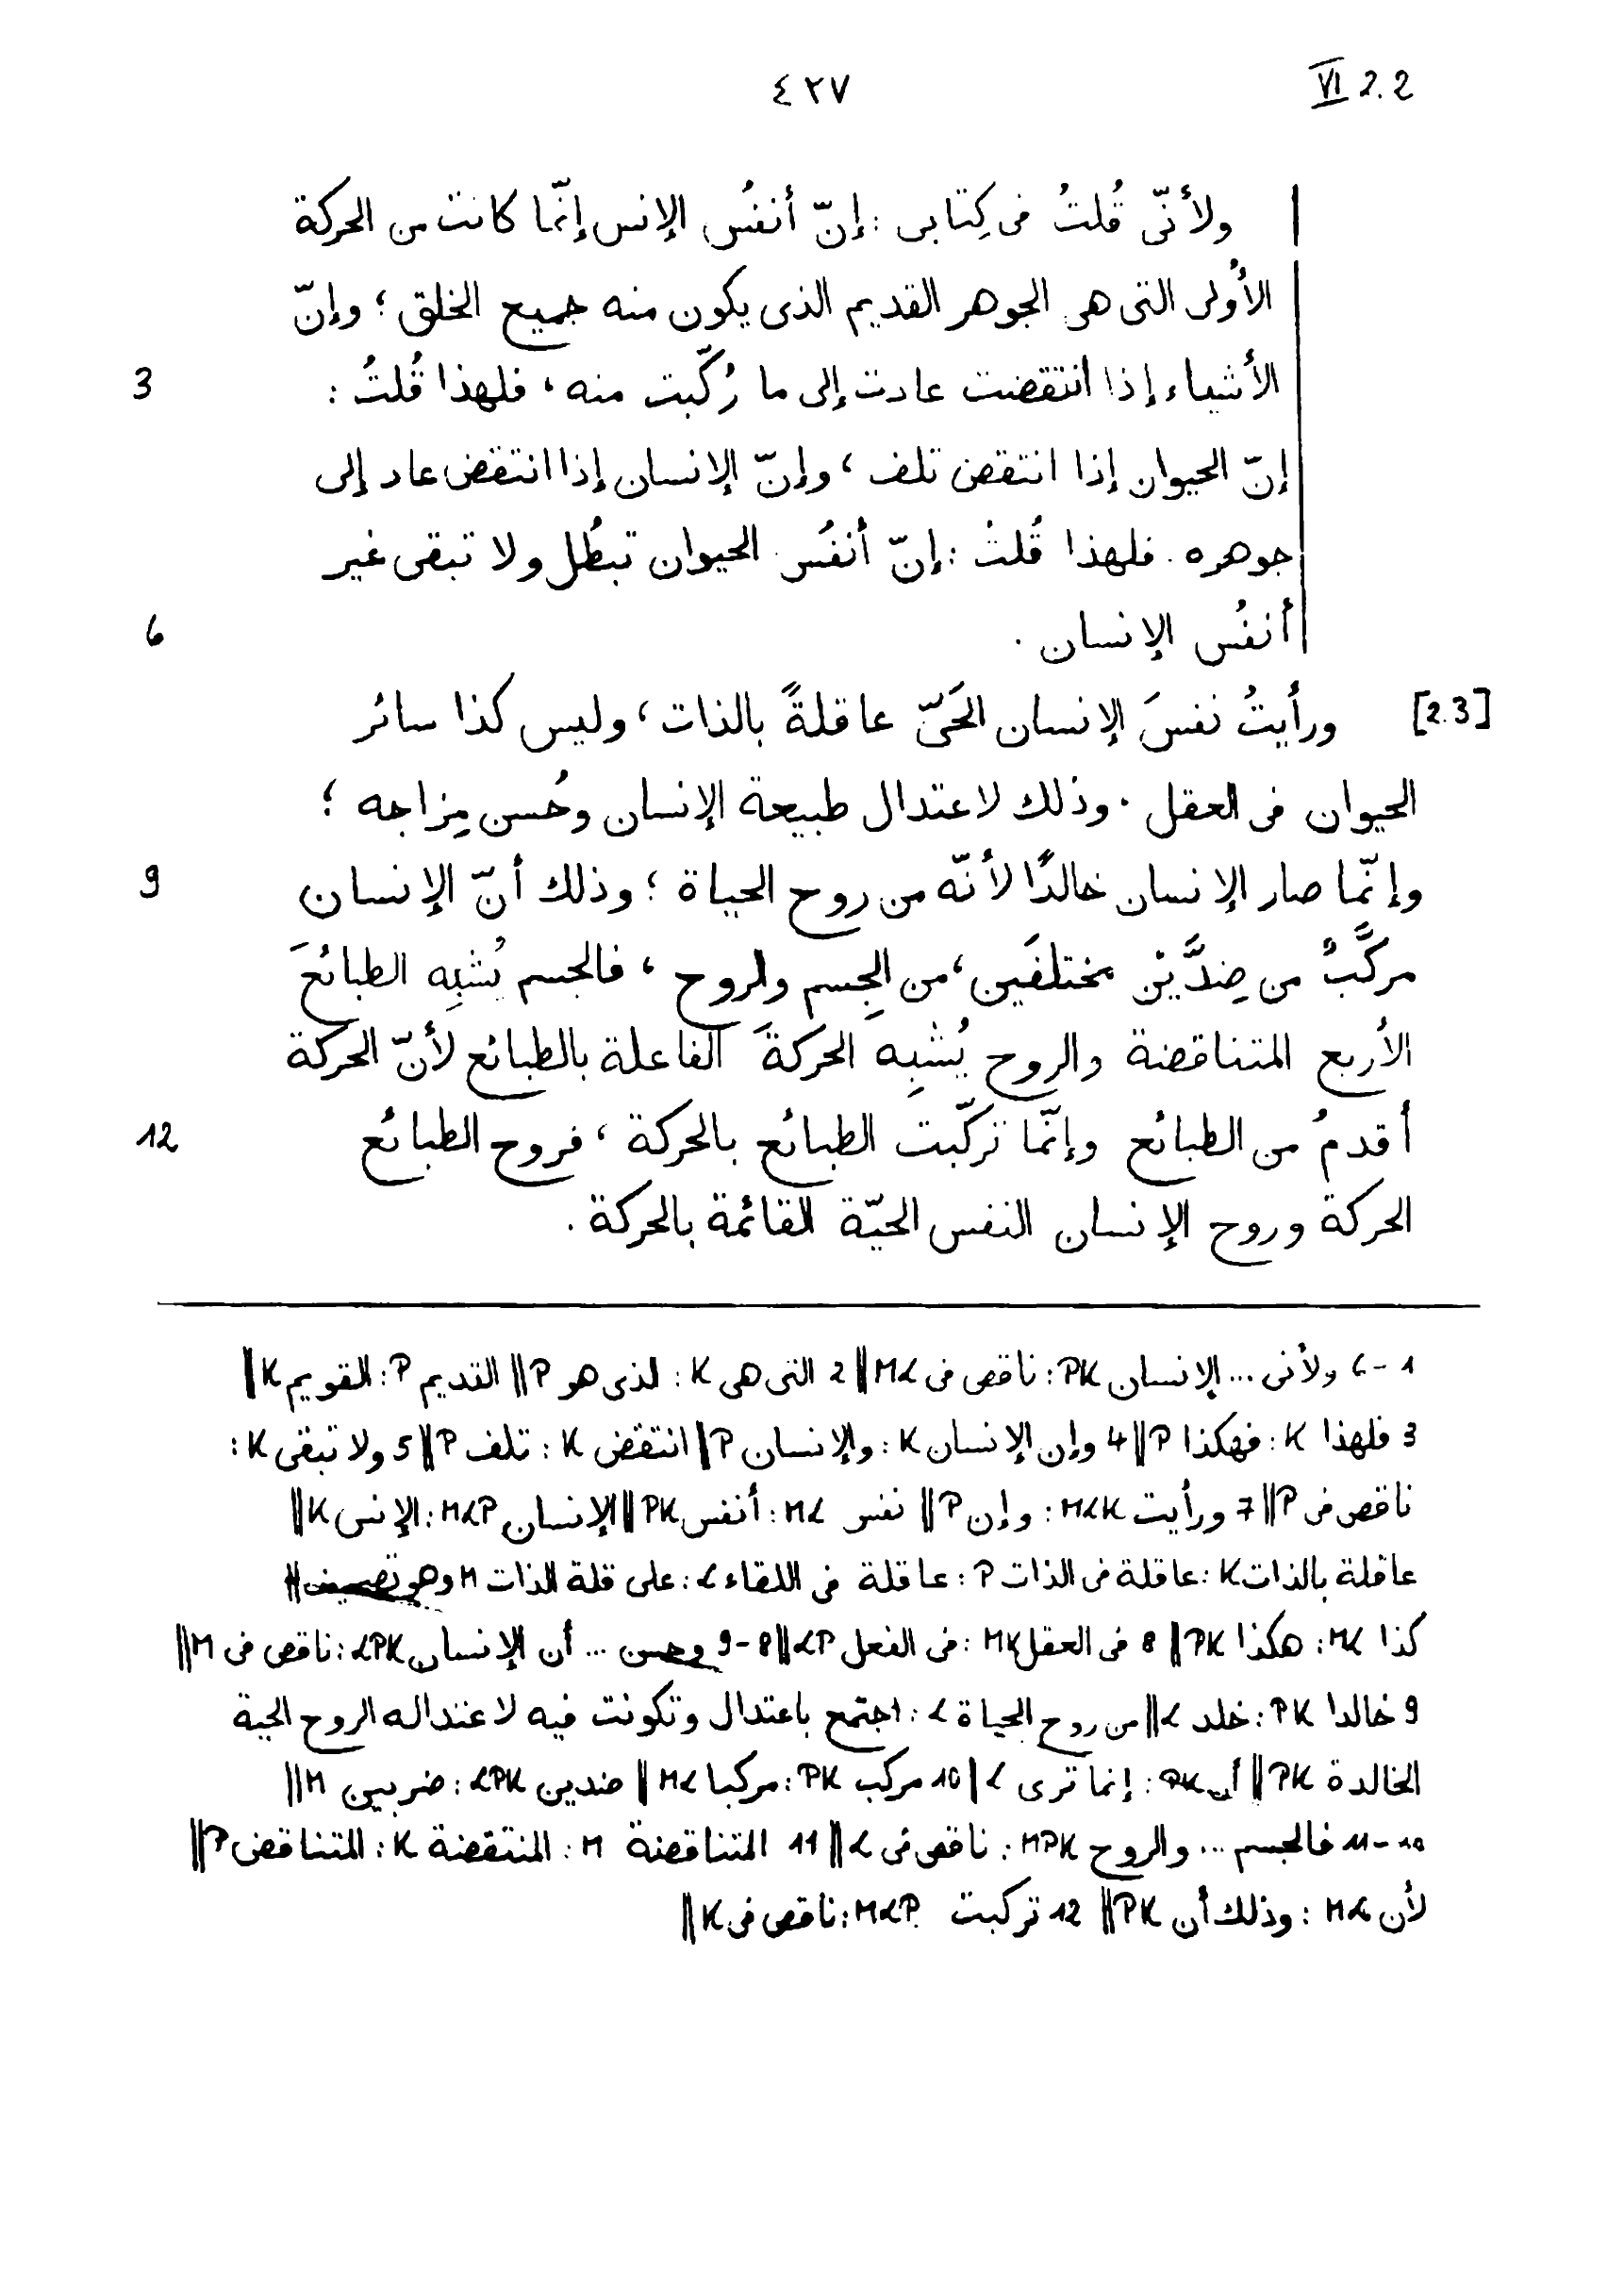 ٤٢٧ VI 2.2
ولأنّى قُلتُ فى كِتابى : إنّ أنفُس الإنس إنّما كانت من الحركة
الأُولى التى هى الجوهر القديم الذى يكون منه جميع الخلق ؛ وإنّ
3 الأشياء إذا انتقضت عادت إلى ما رُكّبت منه ، فلهذا قُلتُ :
إنّ الحيوان إذا انتقض تلف ، وإنّ الإنسان إذا انتقض عاد إلى
جوهره . فلهذا قُلتُ : إنّ أنفُس الحيوان تبطُل ولا تبقى غير
6 أنفُس الإنسان .
[2.3] ورأيتُ نفسَ الإنسان الحَىّ عاقلةً بالذات ، وليس كذا سائر
الحيوان فى العقل . وذلك لاعتدال طبيعة الإنسان وحُسن مِزاجه ؛
9 وإنّما صار الإنسان خالدًا لأنّه من روح الحياة ؛ وذلك أنّ الإنسان
مركَّبٌ من ضِدَّيْن مختلفَين ، من الجِسم والروح ، فالجسم يُشبِه الطبائعَ
الأربع المتناقضة والروح يُشبِه الحركةَ الفاعلة بالطبائع لأنّ الحركة
12 أقدمُ من الطبائع وإنّما تركّبت الطبائع بالحركة ، فروح الطبائع
الحركة وروح الإنسان النفس الحيّة القائمة بالحركة .
1-6 ولأنى ... الإنسان PK : ناقص فى ML || 2 التى هى K : الذى هو P || القديم P : القويم K ||
3 فلهذا K : فهكذا P || 4 وإن الإنسان K : والإنسان P || انتقض K : تلف P || 5 ولا تبقى K :
ناقص فى P || 7 ورأيت MLK : وإن P || نفس ML : أنفس PK || الإنسان MLP : الإنس K ||
عاقلة بالذات K : عاقلة فى الذات P : عاقلة فى اللقاء L : على قلة الذات M وهو تصحيف ||
كذا ML : هكذا PK || 8 فى العقل MK : فى الفعل LP || 8-9 وحسن ... أن الإنسان LPK : ناقص فى M ||
9 خالدا PK : خلد L || من روح الحياة L : اجتمع باعتدال وتكونت فيه لاعتداله الروح الحية
الخالدة PK || أن PK : إنما ترى L || 10 مركب PK : مركبا ML || ضدين LPK : ضربين M ||
10-11 فالجسم ... والروح MPK : ناقص فى L || 11 المتناقضة M : المنتقضة K : المتناقض P ||
لأن ML : وذلك أن PK || 12 تركبت MLP : ناقص فى K ||